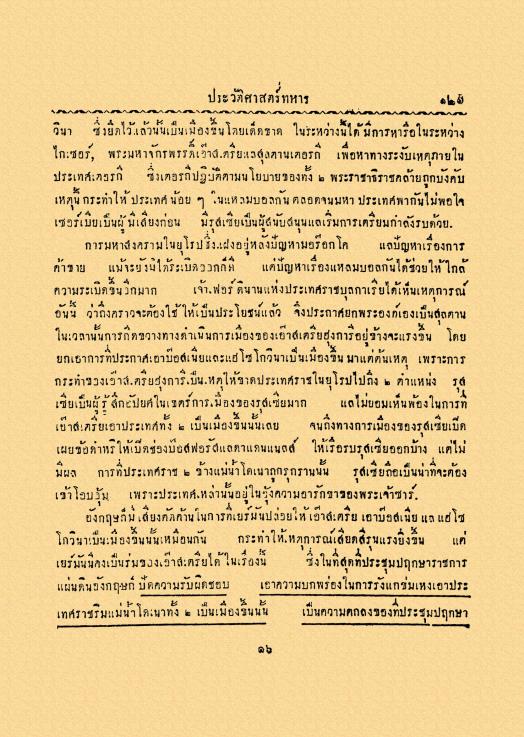 ประวัติศาสตร์ทหาร ๑๒๑
วินา ซึ่งยึดไว้แล้วนั้นเป็นเมืองขึ้นโดยเด็ดขาด ในระหว่างนี้ได้มีการหารือในระหว่าง
ไกเซอร์, พระมหาจักรพรรดิ์เอ๊าส์เตรียและสุลตานเตอรกี เพื่อหาทางระงับเหตุภายใน
ประเทศเตอรกี ซึ่งเตอรกีปฏิบัติตามนโยบายของทั้ง ๒ พระราชาธิราชคล้ายถูกบังคับ
เหตุนี้กระทำให้ ประเทศน้อย ๆ ในแหลมบอลกันตลอดจนมหาประเทศพากันไม่พอใจ
เซอร์เบียเป็นผู้มีเสียงก่อน มีรุสเซียเป็นผู้สนับสนุนและเริ่มการเตรียมกำลังรบด้วย.
การมหาสงครามในยุโรปซึ่งแฝงอยู่หลังปัญหามอร๊อกโค และปัญหาเรื่องการ
ค้าขาย แม้จะยังมิได้ระเบิดออกก็ดี แต่ปัญหาเรื่องแหลมบอลกันได้ช่วยให้ใกล้
ความระเบิดขึ้นอีกมาก เจ้าเฟอร์ดินานแห่งประเทศราชบุลกาเรียได้เห็นเหตุการณ์
อันนี้ ว่าถึงคราวจะต้องใช้ให้เป็นประโยชน์แล้ว จึงประกาศยกพระองค์เองเป็นสุลตาน
ในเวลานั้นการกีดขวางทางดำเนินการเมืองของเอ๊าส์เตรียฮุงการี่อยู่ข้างจะแรงขึ้น โดย
ยกเอาการที่ประกาศเอาบ๊อสเนียและแฮโซโกวินาเป็นเมืองขึ้นมาเป็นต้นเหตุ เพราะการ
กระทำของเอ๊าส์เตรียฮุงการี่เป็นเหตุให้ขาดประเทศราชในยุโรปไปถึง ๒ ตำแหน่ง รุส
เซียเป็นผู้รู้สึกอัปยศในเขตร์การเมืองของรุสเซียมาก และไม่ยอมเห็นพ้องในการที่
เอ๊าส์เตรียเอาประเทศทั้ง ๒ เป็นเมืองขึ้นนั้นเลย จนถึงทางการเมืองของรุสเซียเปิด
เผยข้อดำหริให้เปิดช่องบ๊อสฟอรัสและดาแดนแนลส์ ให้เรือรบรุสเซียออกบ้าง แต่ไม่
มีผล การที่ประเทศราช ๒ ข้างแม่น้ำโดเนาถูกรุกรานนั้น รุสเซียถือเป็นน่าที่จะต้อง
เข้าโอบอุ้ม เพราะประเทศเหล่านั้นอยู่ในรั้งความอารักขาของพระเจ้าซาร์.
อังกฤษก็มีเสียงคัดค้านในการที่เยร์มันปล่อยให้เอ๊าส์เตรีย เอาบ๊อสเนีย และ แฮโซ
โกวินาเป็นเมืองขึ้นนั้นเหมือนกัน กระทำให้เหตุการณ์เสียดสีรุนแรงยิ่งขึ้น แต่
เยร์มันนีคงเป็นร่มของเอ๊าส์เตรียได้ในเรื่องนี้ ซึ่งในที่สุดที่ประชุมปฤกษาราชการ
แผ่นดินอังกฤษก็ ปัดความรับผิดชอบ เอาความบกพร่องในการรั้งแกข่มเหงเอาประ
เทศราชริมแม่น้ำโดเนาทั้ง ๒ เป็นเมืองขึ้นนั้น เป็นความตกลงของที่ประชุมปฤกษา
๑๖